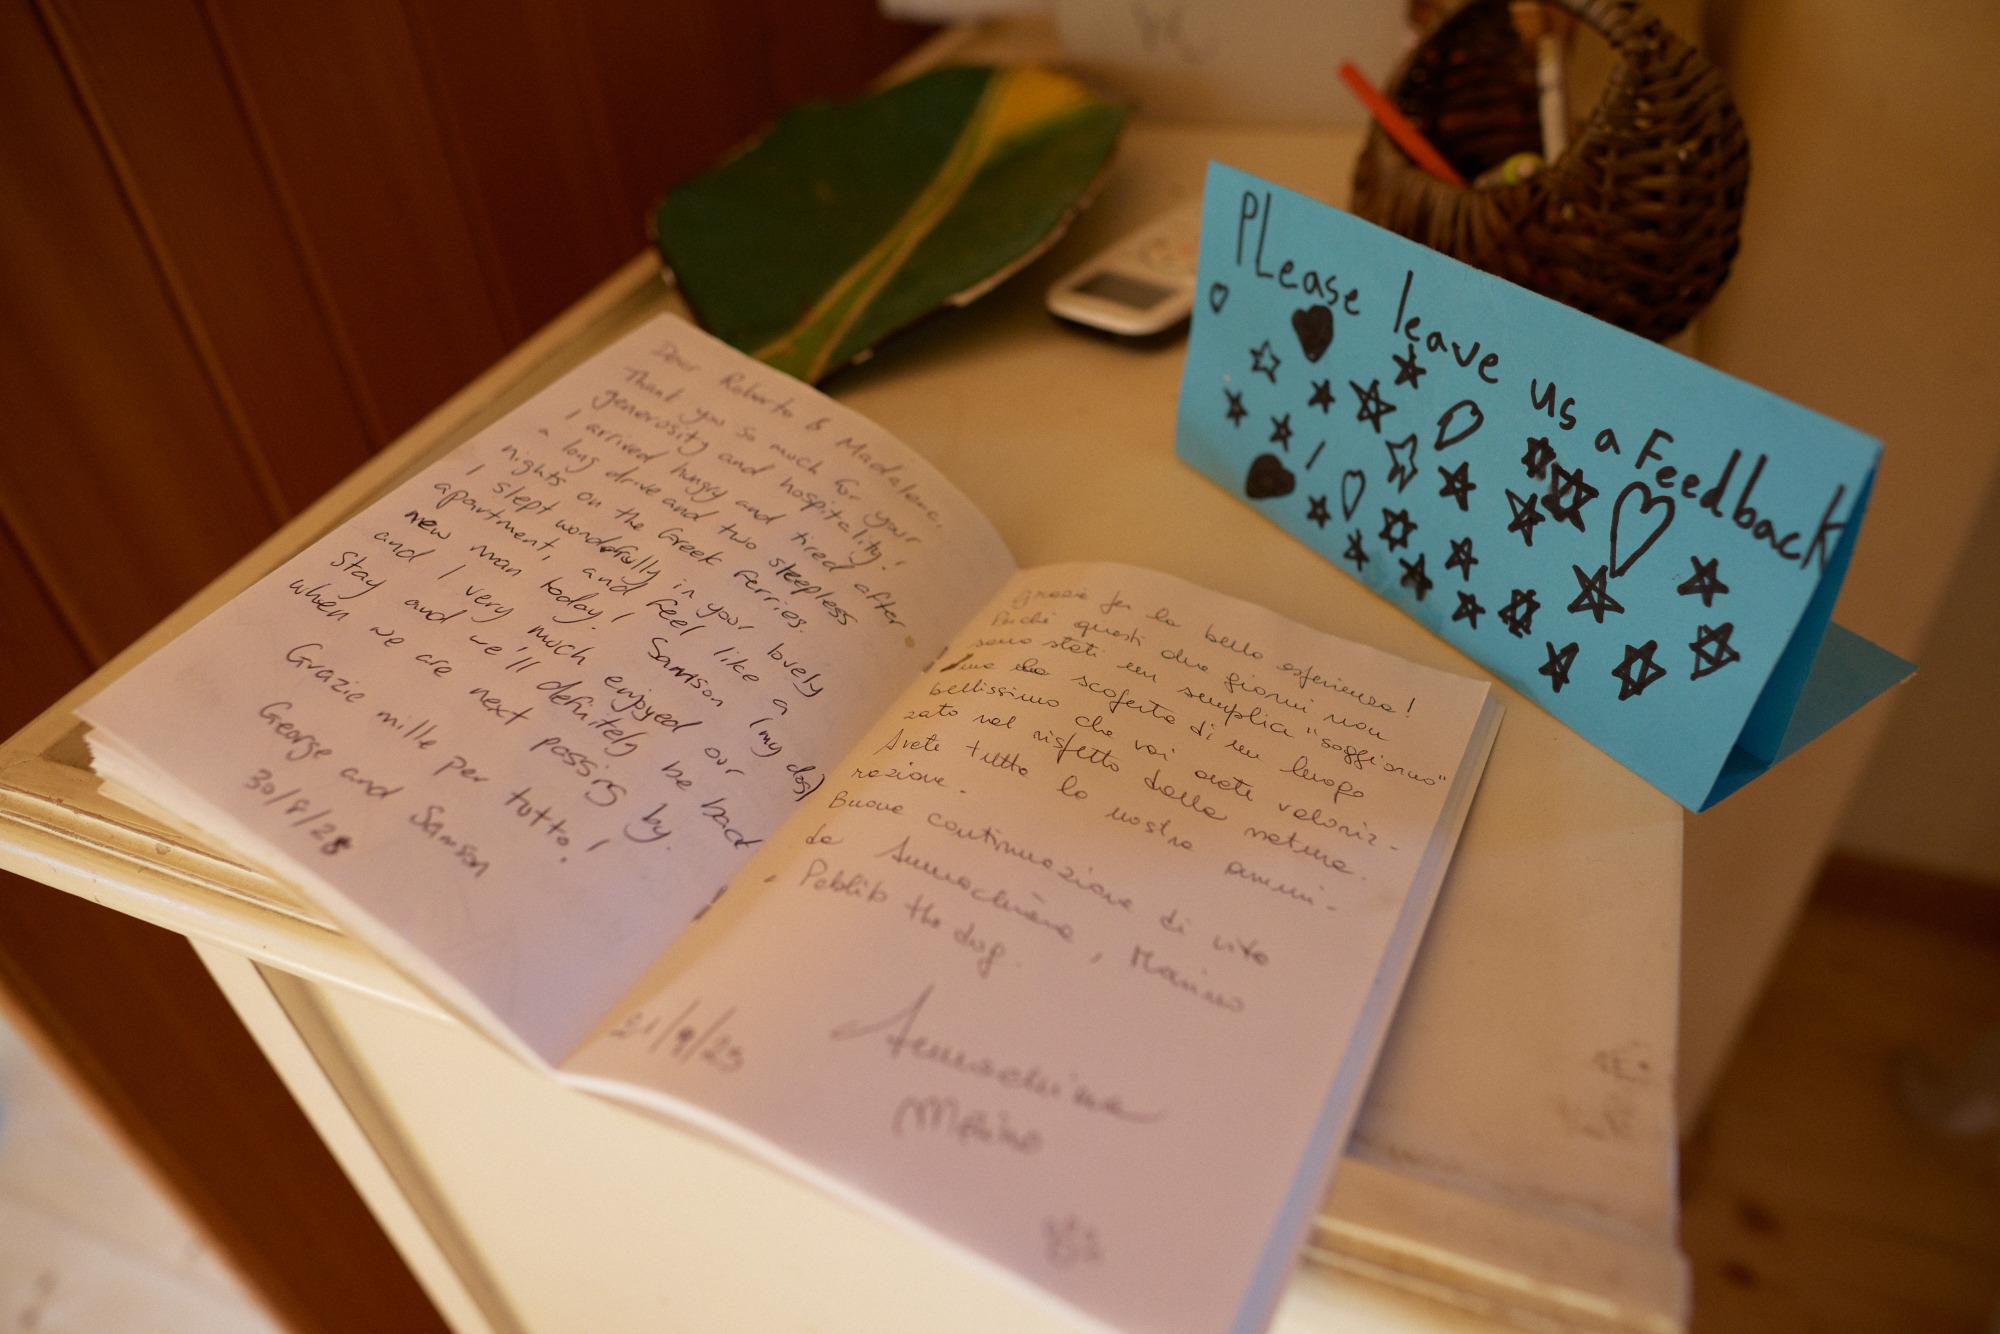 Dear Roberto & Madalena,
Thank you so much for your
generosity and hospitality!
I arrived hungry and tired after
a long drive and two sleepless
nights on the Greek ferries.
I slept wonderfully in your lovely
apartment, and feel like a
new man today! Samson (my dog)
and I very much enjoyed our
stay and we'll definitely be back
when we are next passing by.
Grazie mille per tutto!
George and Samson
30/8/25
Grazie per la bella esperienza!
Perché questi due giorni non
sono stati un semplice "soggiorno"
ma la scoperta di un luogo
bellissimo che voi avete valoriz-
zato nel rispetto della natura.
Avete tutta la nostra ammi-
razione.
Buona continuazione di vita
da Annachiara, Marino
the dog.
21/9/25
Annachiara
Marino
PLease leave us a Feedback